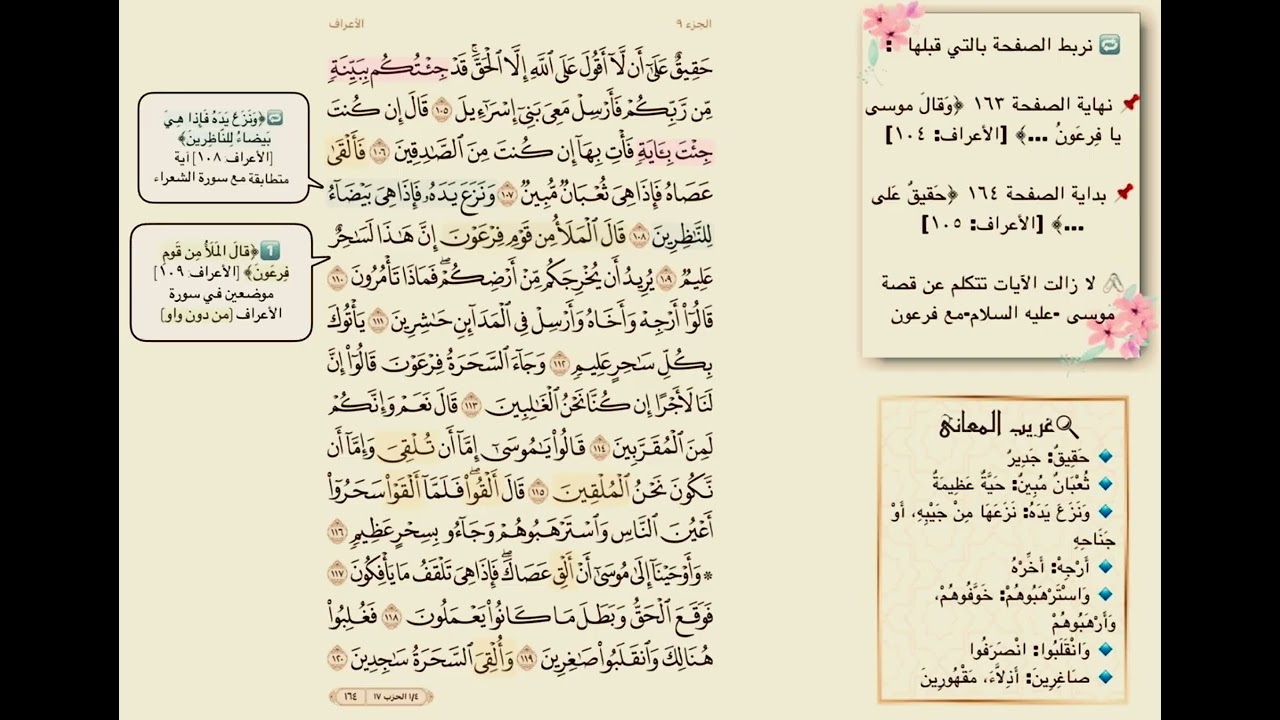 الجزء ٩
الأعراف
حَقِيقٌ عَلَىٰٓ أَن لَّآ أَقُولَ عَلَى ٱللَّهِ إِلَّا ٱلْحَقَّ ۚ قَدْ جِئْتُكُم بِبَيِّنَةٍ
مِّن رَّبِّكُمْ فَأَرْسِلْ مَعِىَ بَنِىٓ إِسْرَٰٓءِيلَ ١٠٥ قَالَ إِن كُنتَ
جِئْتَ بِـَٔايَةٍ فَأْتِ بِهَآ إِن كُنتَ مِنَ ٱلصَّٰدِقِينَ ١٠٦ فَأَلْقَىٰ
عَصَاهُ فَإِذَا هِىَ ثُعْبَانٌ مُّبِينٌ ١٠٧ وَنَزَعَ يَدَهُۥ فَإِذَا هِىَ بَيْضَآءُ
لِلنَّٰظِرِينَ ١٠٨ قَالَ ٱلْمَلَأُ مِن قَوْمِ فِرْعَوْنَ إِنَّ هَٰذَا لَسَٰحِرٌ
عَلِيمٌ ١٠٩ يُرِيدُ أَن يُخْرِجَكُم مِّنْ أَرْضِكُمْ ۖ فَمَاذَا تَأْمُرُونَ ١١٠
قَالُوٓا۟ أَرْجِهْ وَأَخَاهُ وَأَرْسِلْ فِى ٱلْمَدَآئِنِ حَٰشِرِينَ ١١١ يَأْتُوكَ
بِكُلِّ سَٰحِرٍ عَلِيمٍ ١١٢ وَجَآءَ ٱلسَّحَرَةُ فِرْعَوْنَ قَالُوٓا۟ إِنَّ
لَنَا لَأَجْرًا إِن كُنَّا نَحْنُ ٱلْغَٰلِبِينَ ١١٣ قَالَ نَعَمْ وَإِنَّكُمْ
لَمِنَ ٱلْمُقَرَّبِينَ ١١٤ قَالُوا۟ يَٰمُوسَىٰٓ إِمَّآ أَن تُلْقِىَ وَإِمَّآ أَن
نَّكُونَ نَحْنُ ٱلْمُلْقِينَ ١١٥ قَالَ أَلْقُوا۟ ۖ فَلَمَّآ أَلْقَوْا۟ سَحَرُوٓا۟
أَعْيُنَ ٱلنَّاسِ وَٱسْتَرْهَبُوهُمْ وَجَآءُو بِسِحْرٍ عَظِيمٍ ١١٦
۞ وَأَوْحَيْنَآ إِلَىٰ مُوسَىٰٓ أَنْ أَلْقِ عَصَاكَ ۖ فَإِذَا هِىَ تَلْقَفُ مَا يَأْفِكُونَ ١١٧
فَوَقَعَ ٱلْحَقُّ وَبَطَلَ مَا كَانُوا۟ يَعْمَلُونَ ١١٨ فَغُلِبُوا۟
هُنَالِكَ وَٱنقَلَبُوا۟ صَٰغِرِينَ ١١٩ وَأُلْقِىَ ٱلسَّحَرَةُ سَٰجِدِينَ ١٢٠
١/٤ الحزب ١٧
١٦٤
نربط الصفحة بالتي قبلها :
نهاية الصفحة ١٦٣ ﴿وَقالَ موسى
يا فِرعَونُ ...﴾ [الأعراف: ١٠٤]
بداية الصفحة ١٦٤ ﴿حَقيقٌ عَلى
...﴾ [الأعراف: ١٠٥]
لا زالت الآيات تتكلم عن قصة
موسى -عليه السلام-مع فرعون
غريب المعاني
حَقِيقٌ: جَدِيرٌ
ثُعْبَانٌ مُبِينٌ: حَيَّةٌ عَظِيمَةٌ
وَنَزَعَ يَدَهُ: نَزَعَهَا مِنْ جَيْبِهِ، أَوْ
جَنَاحِهِ
أَرْجِهْ: أَخِّرْهُ
وَاسْتَرْهَبُوهُمْ: خَوَّفُوهُمْ،
وَأَرْهَبُوهُمْ
وَانْقَلَبُوا: انْصَرَفُوا
صَاغِرِينَ: أَذِلاَّءَ، مَقْهُورِينَ
﴿وَنَزَعَ يَدَهُ فَإِذا هِيَ
بَيضاءُ لِلنّاظِرينَ﴾
[الأعراف: ١٠٨] آية
متطابقة مع سورة الشعراء
1 ﴿قالَ المَلَأُ مِن قَومِ
فِرعَونَ﴾ [الأعراف: ١٠٩]
موضعين في سورة
الأعراف (من دون واو)